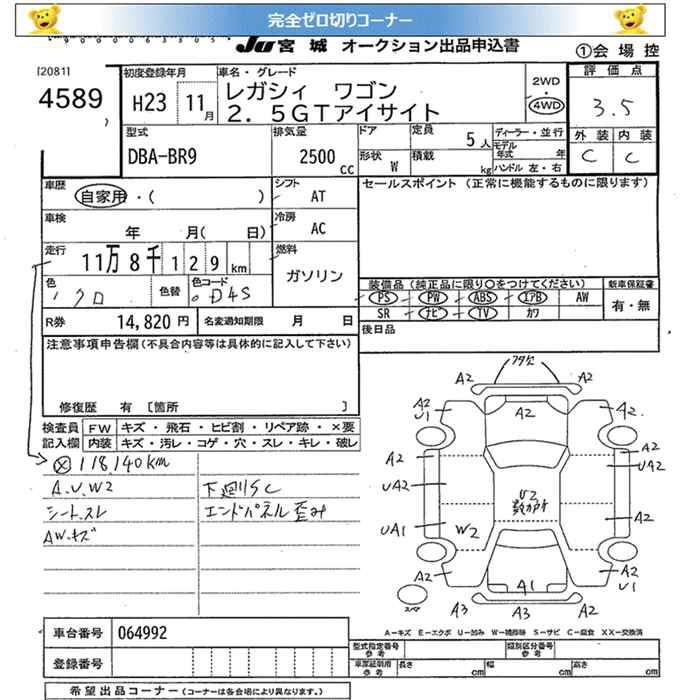 完全ゼロ切りコーナー
JU 宮城 オークション出品申込書
①会場控
[2081]
4589
初度登録年月
H23 11月
車名・グレード
レガシィ ワゴン
2.5GTアイサイト
2WD
4WD
評価点
3.5
外装 内装
C C
型式
DBA-BR9
排気量
2500 CC
ドア
形状 W
定員 5人
積載 kg
ディーラー・並行
モデル年式 年
ハンドル 左・右
車歴
自家用・( )
シフト AT
セールスポイント (正常に機能するものに限ります)
車検
年 月( 日)
冷房 AC
走行
11万8千129km
燃料
ガソリン
色 クロ
色替
色コード D4S
装備品(純正品に限り○をつけてください)
新車保証書
PS PW ABS エアB AW
SR ナビ TV カワ
有・無
R券 14,820円
名変通知期限 月 日
後日品
注意事項申告欄(不具合内容等は具体的に記入して下さい)
修復歴 有 〔箇所 〕
検査員記入欄
FW キズ・飛石・ヒビ割・リペア跡・×要
内装 キズ・汚レ・コゲ・穴・スレ・キレ・破レ
Ⓧ118,140km
A.U.W2
下廻りSC
シートスレ
エンドパネル歪み
AWキズ
フタ欠
A2 A2
A2
U1
A2
A2
A2 A2
UA2
UA2
U2
数カ所
A2
UA1
W2
A2
A1
A2
U1
スペア
A3 A3 A2
A-キズ E-エクボ U-凹み W-補修跡 S-サビ C-腐食 XX-交換済
車台番号 064992
登録番号
型式指定番号
参考
類別区分番号
参考
車庫証明用
参考
長さ cm 幅 cm 高さ cm
希望出品コーナー(コーナーは各会場により異なります。)